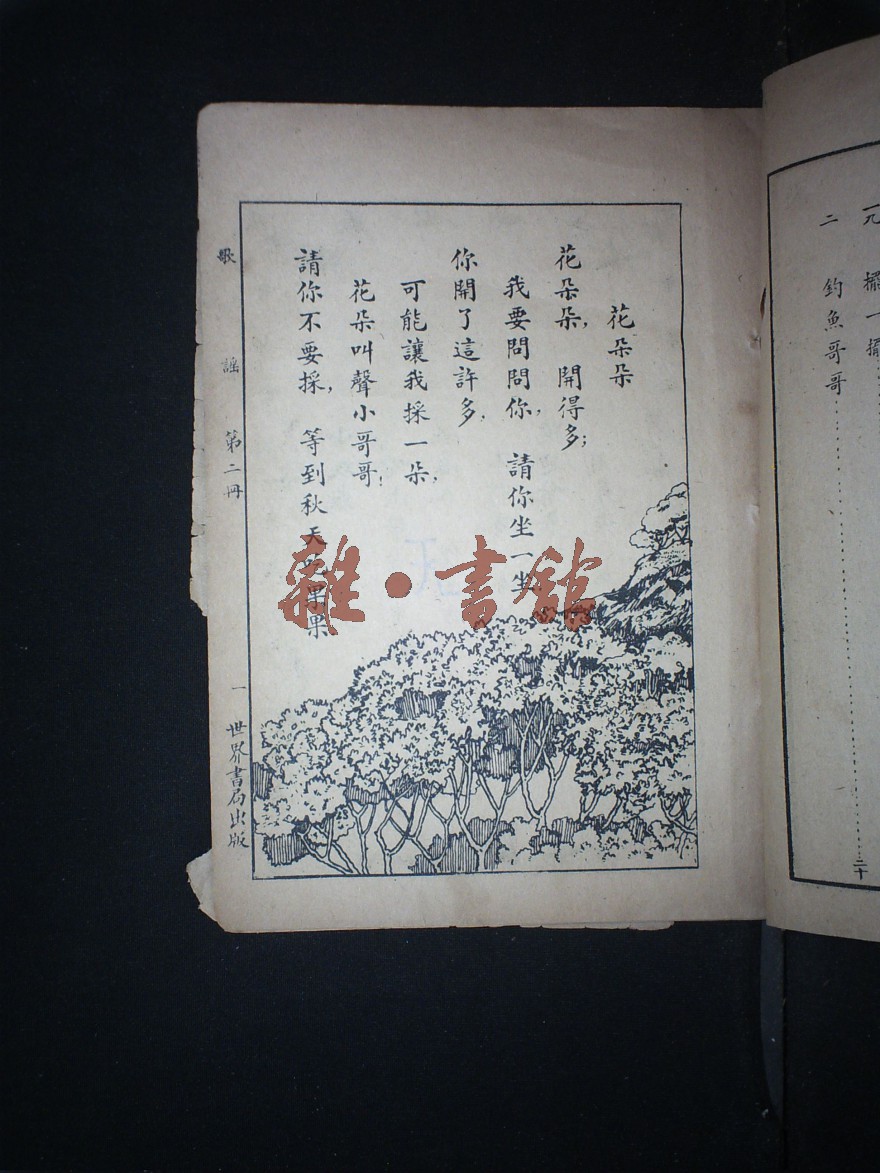 一九 擺一擺
二 釣魚哥哥……二十
花朵朵
花朵朵，開得多；
我要問問你，請你坐一坐
你開了這許多，
可能讓我採一朵，
花朵叫聲小哥哥：
請你不要採，等到秋天吃果果
歌謠 第二冊 一 世界書局出版
雜·書館